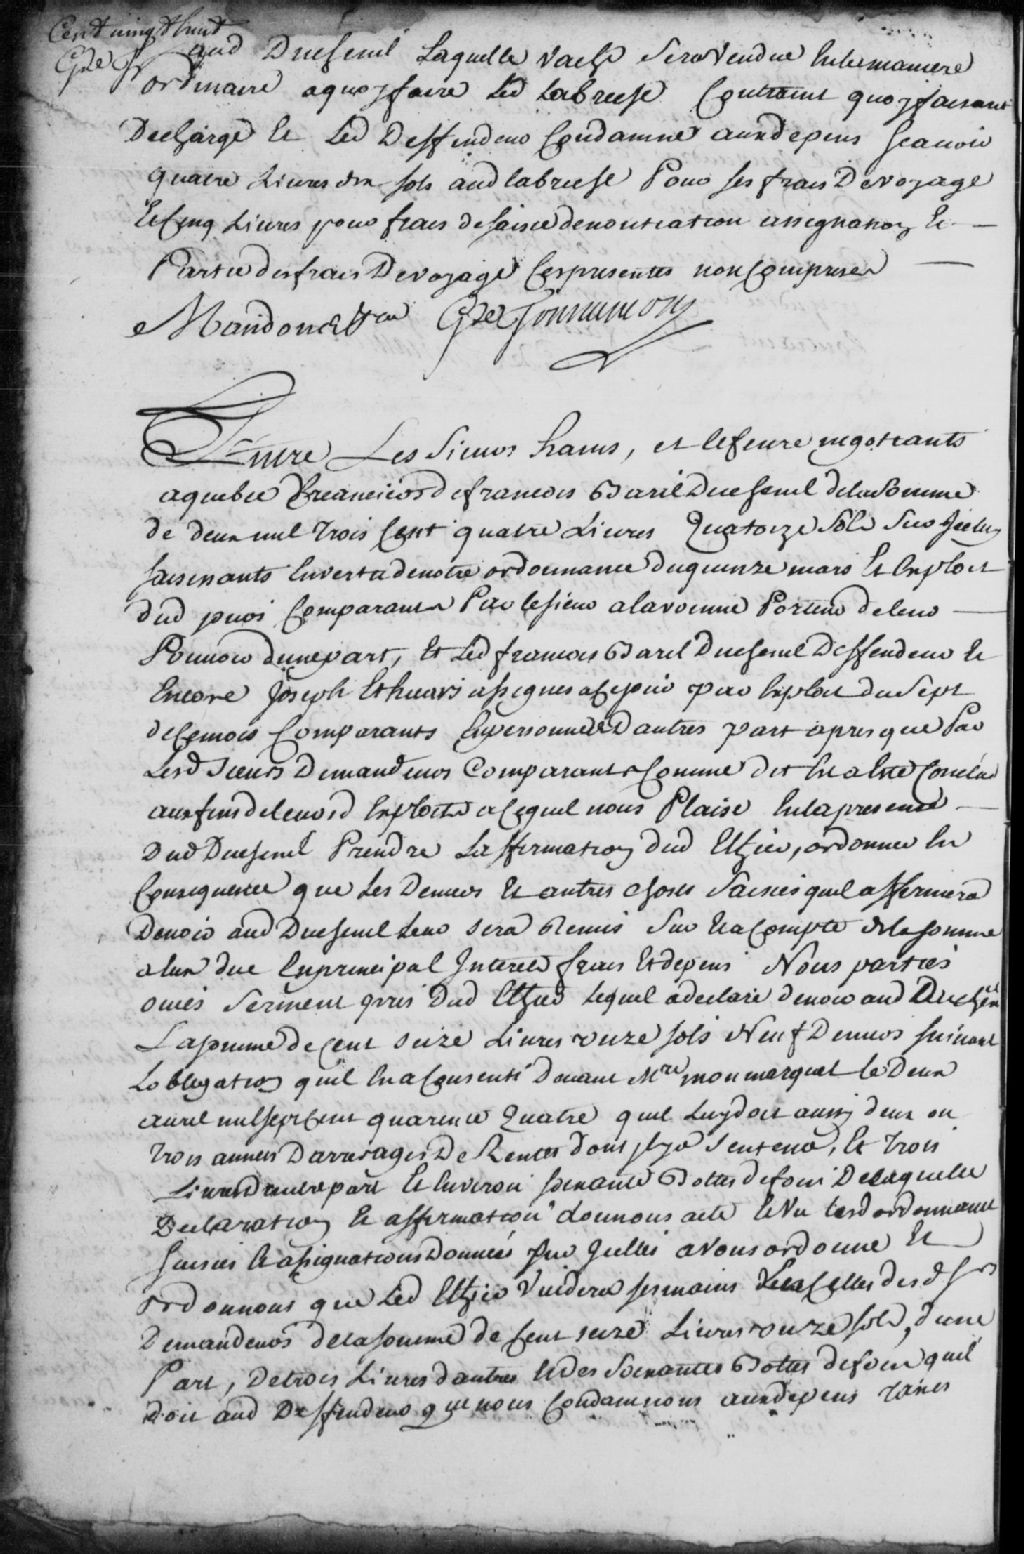 Cent vingt huit
Gde f aud Duchenil Laquelle vache sera vendue En la maniere
ordinaire a quoy faire Led Labresche Contraint quoy faisant
Decharge Et Led Deffendeur Condamné aux depens scavoir
quatre Livres dix sols aud labresche Pour ses frais De voyage
Et Cinq Livres pour frais de saisie denontiation assignation Et
Partie des frais De voyage Ces presentes non Comprises
Mandons &ca Gde fonssennom
Entre Les Sieurs havis, et lefevre negotiants
a quebec Creanciers de francois Baril Duchenil de la Somme
de deux mil trois Cent quatre Livres Quatorze Sols Sur Icelui
saisissants En vertu de notre ordonnance du quinze mars Et Exploit
dud jour Comparant Par le sieur alavoinne Porteur de leur
Pouvoir d'une part, Et Led francois Baril Duchenil Deffendeur Et
Encore Joseph Ethier assignés a Ce jour par Exploit du Sept
de Ce mois Comparants En personnes D'autres part apres que Par
Lesd Sieurs Demandeurs Comparant Comme dit En a Esté Conclud
aux fins de leursd Exploits a Ce quil nous Plaise En la presence
Dud Duchenil Prendre L'affirmation dud Ethier, ordonner En
Consequence que Les Deniers Et autres choses Saisies quil affirmera
Devoir aud Duchenil Leur sera Remis Sur Et a Compte de la somme
a Eux due En principal Interets frais Et depens Nous parties
ouies Serment pris Dud Ethier Lequel a declaré devoir aud Duchenil
La somme de Cent seize Livres onze sols Neuf Deniers suivant
Lobligation quil En a Consenti Devant Mre monmerquet le Deux
avril mil sept Cent quarente Quatre quil Luy doit aussi deux ou
trois années D'arrerages De Rentes dont jl y a sentence, Et trois
Livres d'autre part Et Environ soixante Bottes de foin De laquelle
Declaration Et affirmation donnons acte Et Vu lesd ordonnance
saisies Et assignations Données par Icelles avons ordonné Et
ordonnons que Led Ethier Vuidera ses mains En Celles des d Srs
Demandeurs de la somme de Cent seize Livres onze sols, d'une
Part, De trois Livres d'autres Et des Soixantes Bottes de foin quil
Doit aud Deffendeur que nous Condamnons aux depens taxés